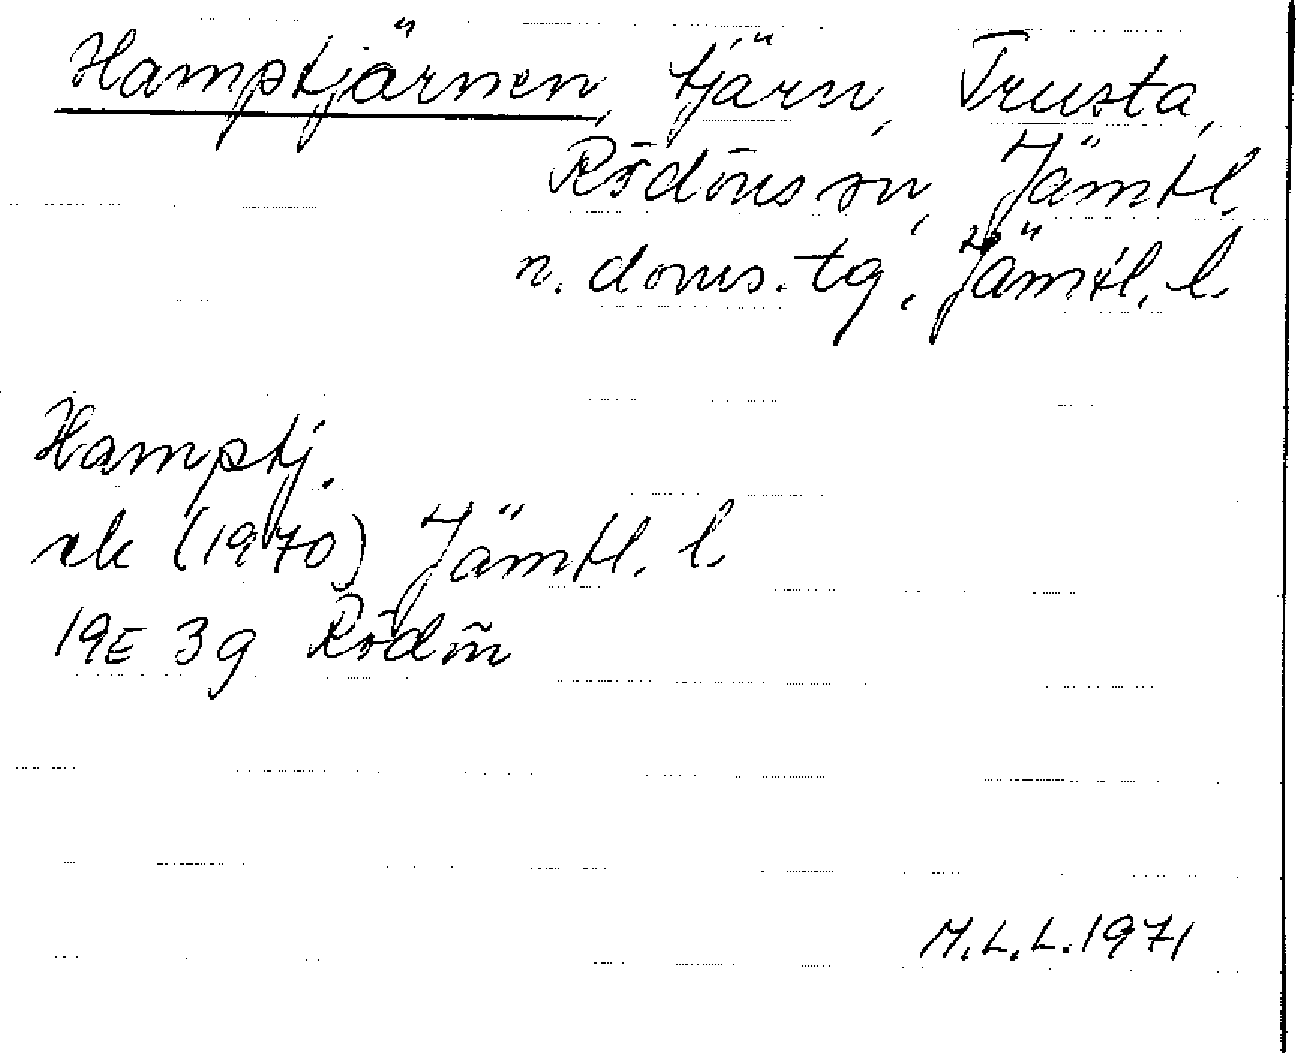 Hamptjärnen, tjärn, Trusta,
Rödöns sn, Jämtl.
n. doms. tg, Jämtl. l.
Hamptj.
ek (1970) Jämtl. l.
19E 3g Rödön
M.L.L. 1971